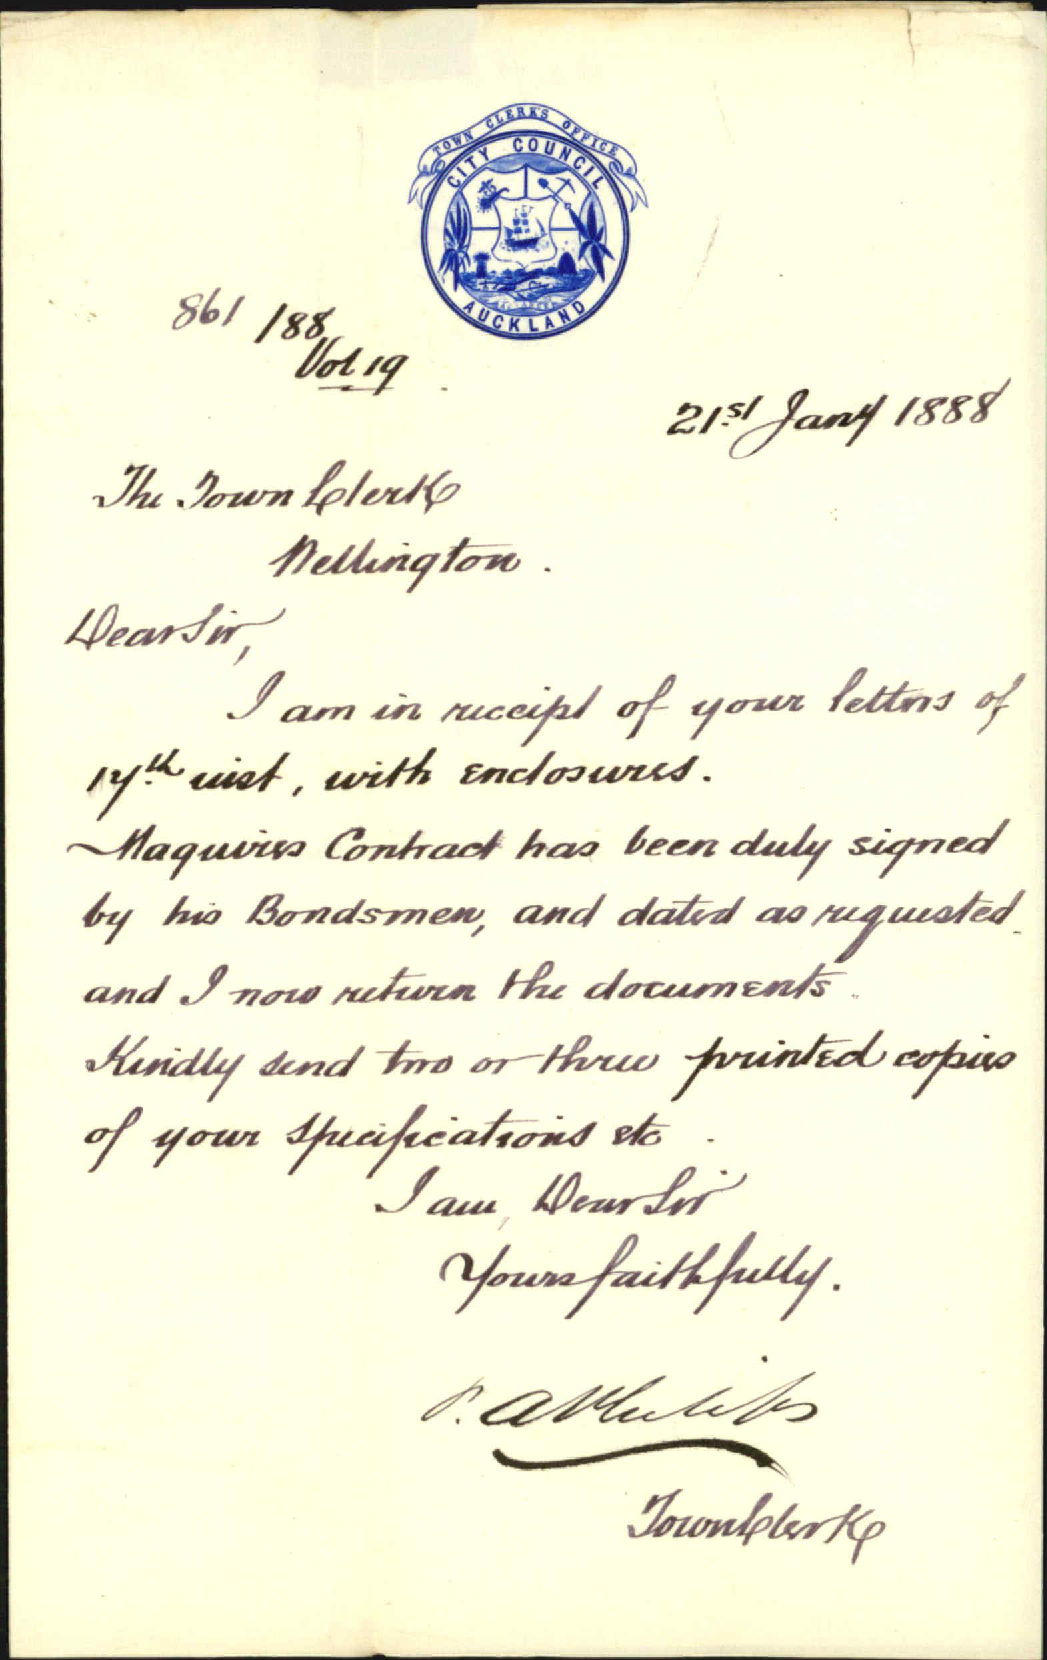 TOWN CLERK'S OFFICE
CITY COUNCIL
AUCKLAND
861/88
Vol 19
21st Jany 1888
The Town Clerk
Wellington.
Dear Sir,
I am in receipt of your letters of
17th inst, with enclosures.
Maguires Contract has been duly signed
by his Bondsmen, and dated as requested
and I now return the documents.
Kindly send two or three printed copies
of your specifications etc.
I am, Dear Sir
Yours faithfully.
P. A. Philips
Town Clerk